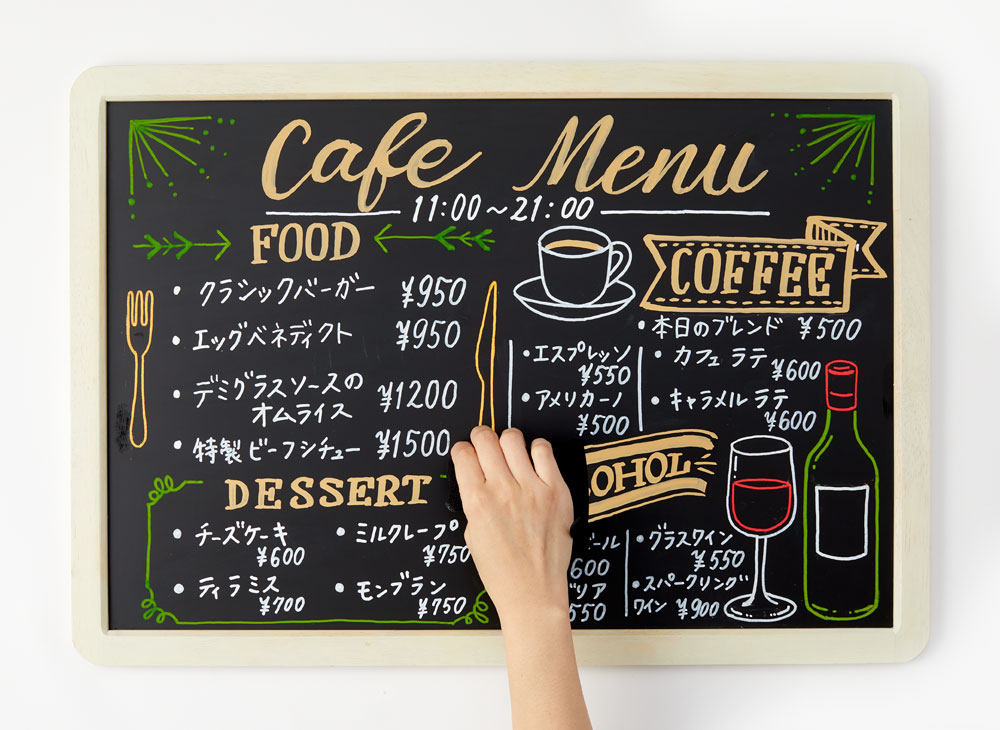 Cafe Menu
11:00～21:00
FOOD
・クラシックバーガー ¥950
・エッグベネディクト ¥950
・デミグラスソースの
オムライス ¥1200
・特製ビーフシチュー ¥1500
DESSERT
・チーズケーキ
¥600
・ミルクレープ
¥750
・ティラミス
¥700
・モンブラン
¥750
COFFEE
・本日のブレンド ¥500
・エスプレッソ
¥550
・アメリカーノ
¥500
・カフェラテ
¥600
・キャラメルラテ
¥600
OHOL
ール
600
550
・グラスワイン
¥550
・スパークリング
ワイン ¥900